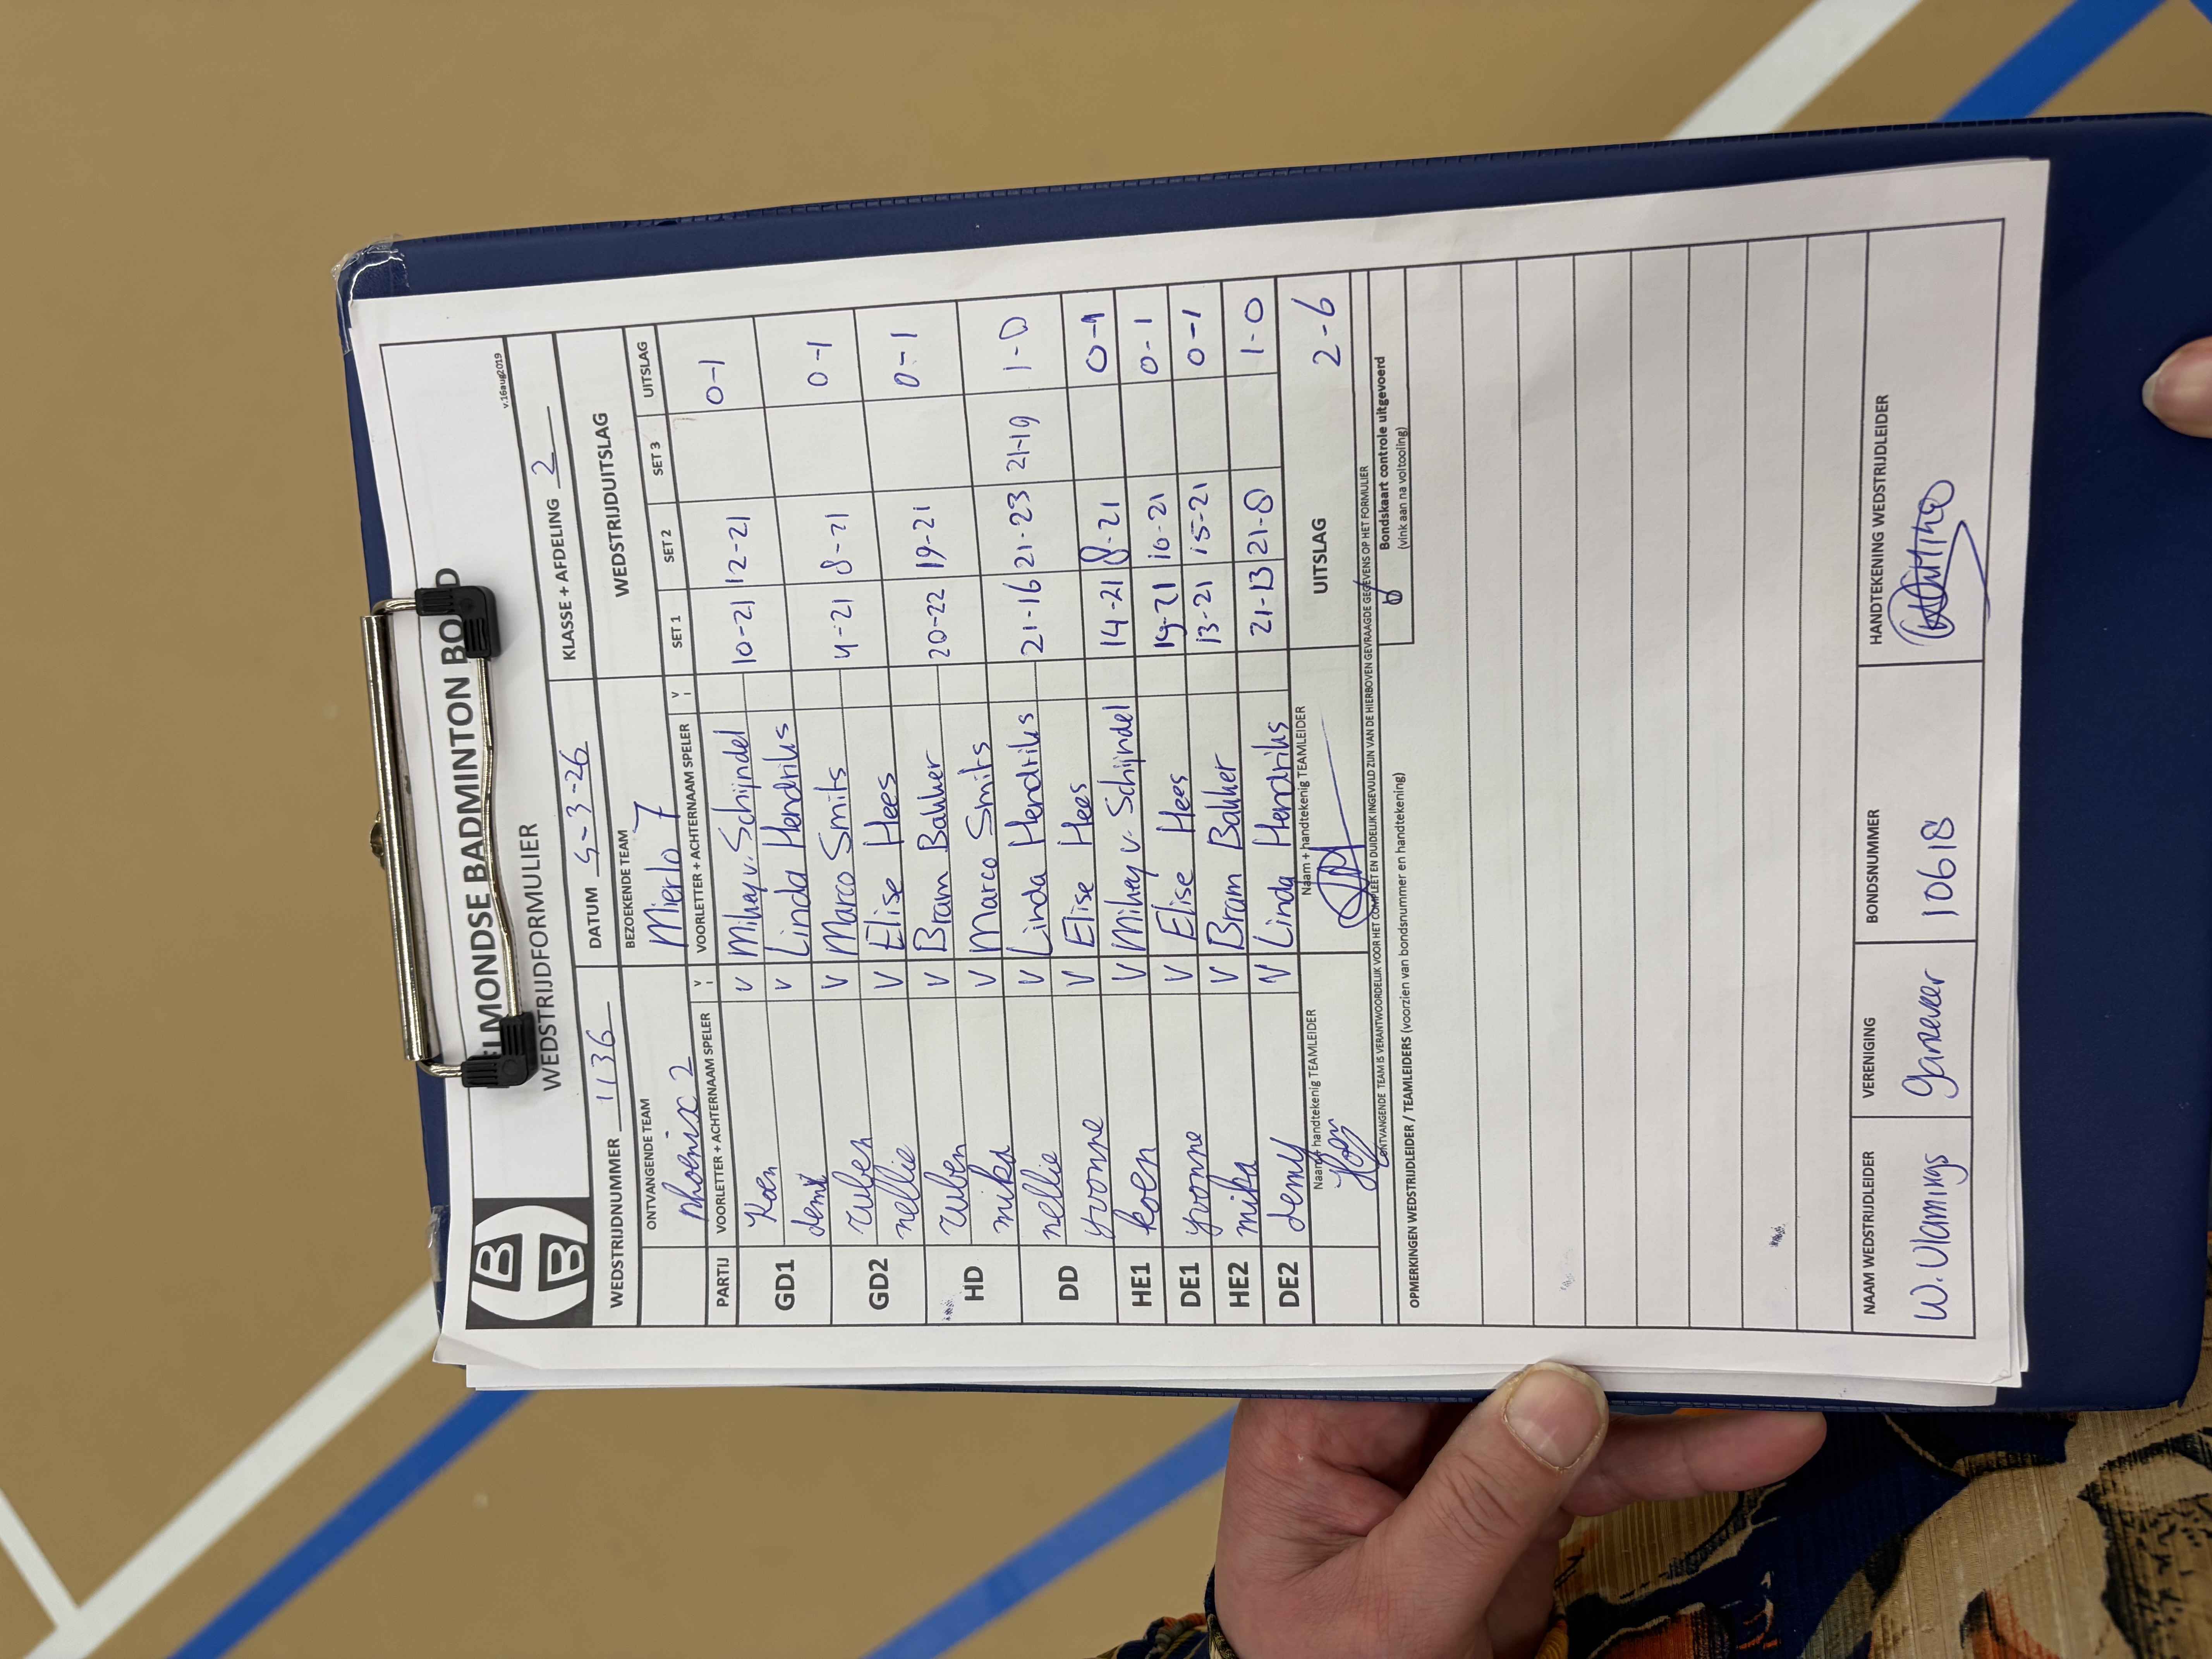 HELMONDSE BADMINTON BOND
WEDSTRIJDFORMULIER
v.16aug2019
WEDSTRIJDNUMMER 1136 DATUM 5-3-26 KLASSE + AFDELING 2
ONTVANGENDE TEAM BEZOEKENDE TEAM WEDSTRIJDUITSLAG
phoenix 2 Mierlo 7
PARTIJ VOORLETTER + ACHTERNAAM SPELER V VOORLETTER + ACHTERNAAM SPELER V SET 1 SET 2 SET 3 UITSLAG
GD1 Koen V Mikey v. Schijndel 10-21 12-21 0-1
demi V Linda Hendriks
GD2 ruben V Marco Smits 4-21 8-21 0-1
nellie V Elise Hees
HD ruben V Bram Bakker 20-22 19-21 0-1
mika V Marco Smits
DD nellie V Linda Hendriks 21-16 21-23 21-19 1-0
yvonne V Elise Hees
HE1 koen V Mikey v. Schijndel 14-21 8-21 0-1
DE1 yvonne V Elise Hees 19-21 10-21 0-1
HE2 mika V Bram Bakker 13-21 15-21 0-1
DE2 demy V Linda Hendriks 21-13 21-8 1-0
Naam + handtekenig TEAMLEIDER Naam + handtekenig TEAMLEIDER UITSLAG 2-6
ONTVANGENDE TEAM IS VERANTWOORDELIJK VOOR HET COMPLEET EN DUIDELIJK INGEVULD ZIJN VAN DE HIERBOVEN GEVRAAGDE GEGEVENS OP HET FORMULIER
Bondskaart controle uitgevoerd
(vink aan na voltooiing)
OPMERKINGEN WEDSTRIJDLEIDER / TEAMLEIDERS (voorzien van bondsnummer en handtekening)
NAAM WEDSTRIJDLEIDER VERENIGING BONDSNUMMER HANDTEKENING WEDSTRIJDLEIDER
W. Vlamings Ganzeveer 10618